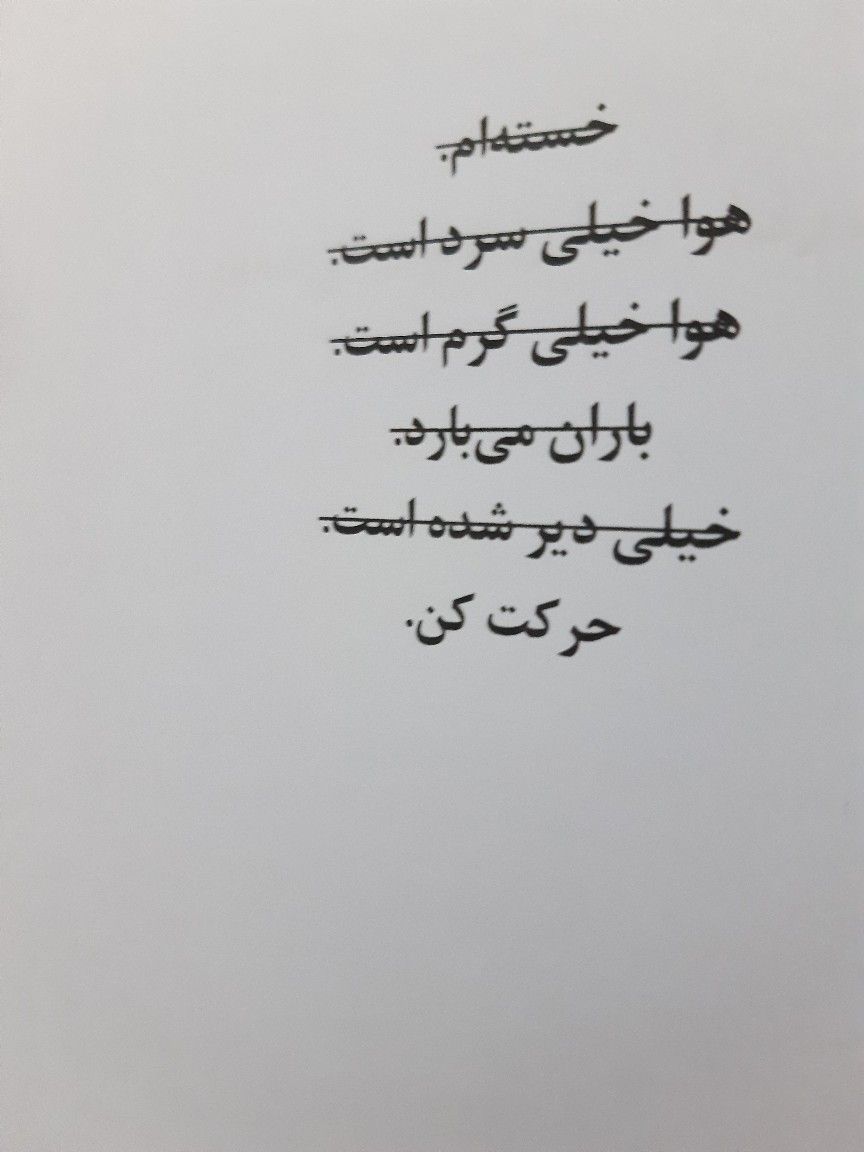 خسته‌ام.
هوا خیلی سرد است.
هوا خیلی گرم است.
باران می‌بارد.
خیلی دیر شده است.
حرکت کن.